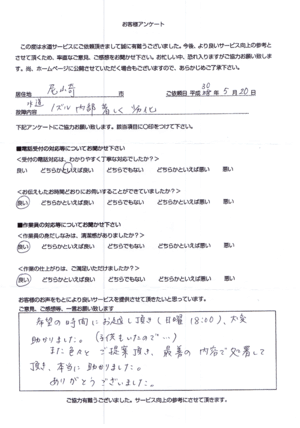 お客様アンケート
この度は水道サービスにご依頼頂きまして誠に有難うございました。今後、より良いサービス向上の参考と
させて頂くため、率直なご意見、ご感想をお聞かせ下さい。お忙しい中、恐れ入りますがご協力お願い致しま
す。尚、ホームページに公開させていただく場合もございますので、あらかじめご了承下さい。
居住地 市 ご依頼日 平成 30 年 5 月 20 日
故障内容 水道 ノズル内部著しく劣化
下記アンケートにご協力お願い致します。該当項目に○印をつけて下さい。
■電話受付の対応等についてお聞かせ下さい
<受付の電話対応は、わかりやすく丁寧な対応でしたか?>
良い どちらかといえば良い どちらでもない どちらかといえば悪い 悪い
<お伝えしたお時間どおりにお伺いすることができていましたか?>
良い どちらかといえば良い どちらでもない どちらかといえば悪い 悪い
■作業員の対応等についてお聞かせ下さい
<作業員の身だしなみは、清潔感がありましたか?>
良い どちらかといえば良い どちらでもない どちらかといえば悪い 悪い
<作業の仕上がりは、ご満足いただけましたか?>
良い どちらかといえば良い どちらでもない どちらかといえば悪い 悪い
お客様のお声をもとにより良いサービスを提供させて頂きたいと思っています。
ご意見、ご感想等、一言お願い致します
希望の時間にお越し頂き(日曜 18:00)、大変
助かりました。(子供もいたので…)
また色々とご提案頂き、最善の内容で処置して
頂き、本当に助かりました。
ありがとうございました。
ご協力有難うございました。サービス向上の参考にさせて頂きます。